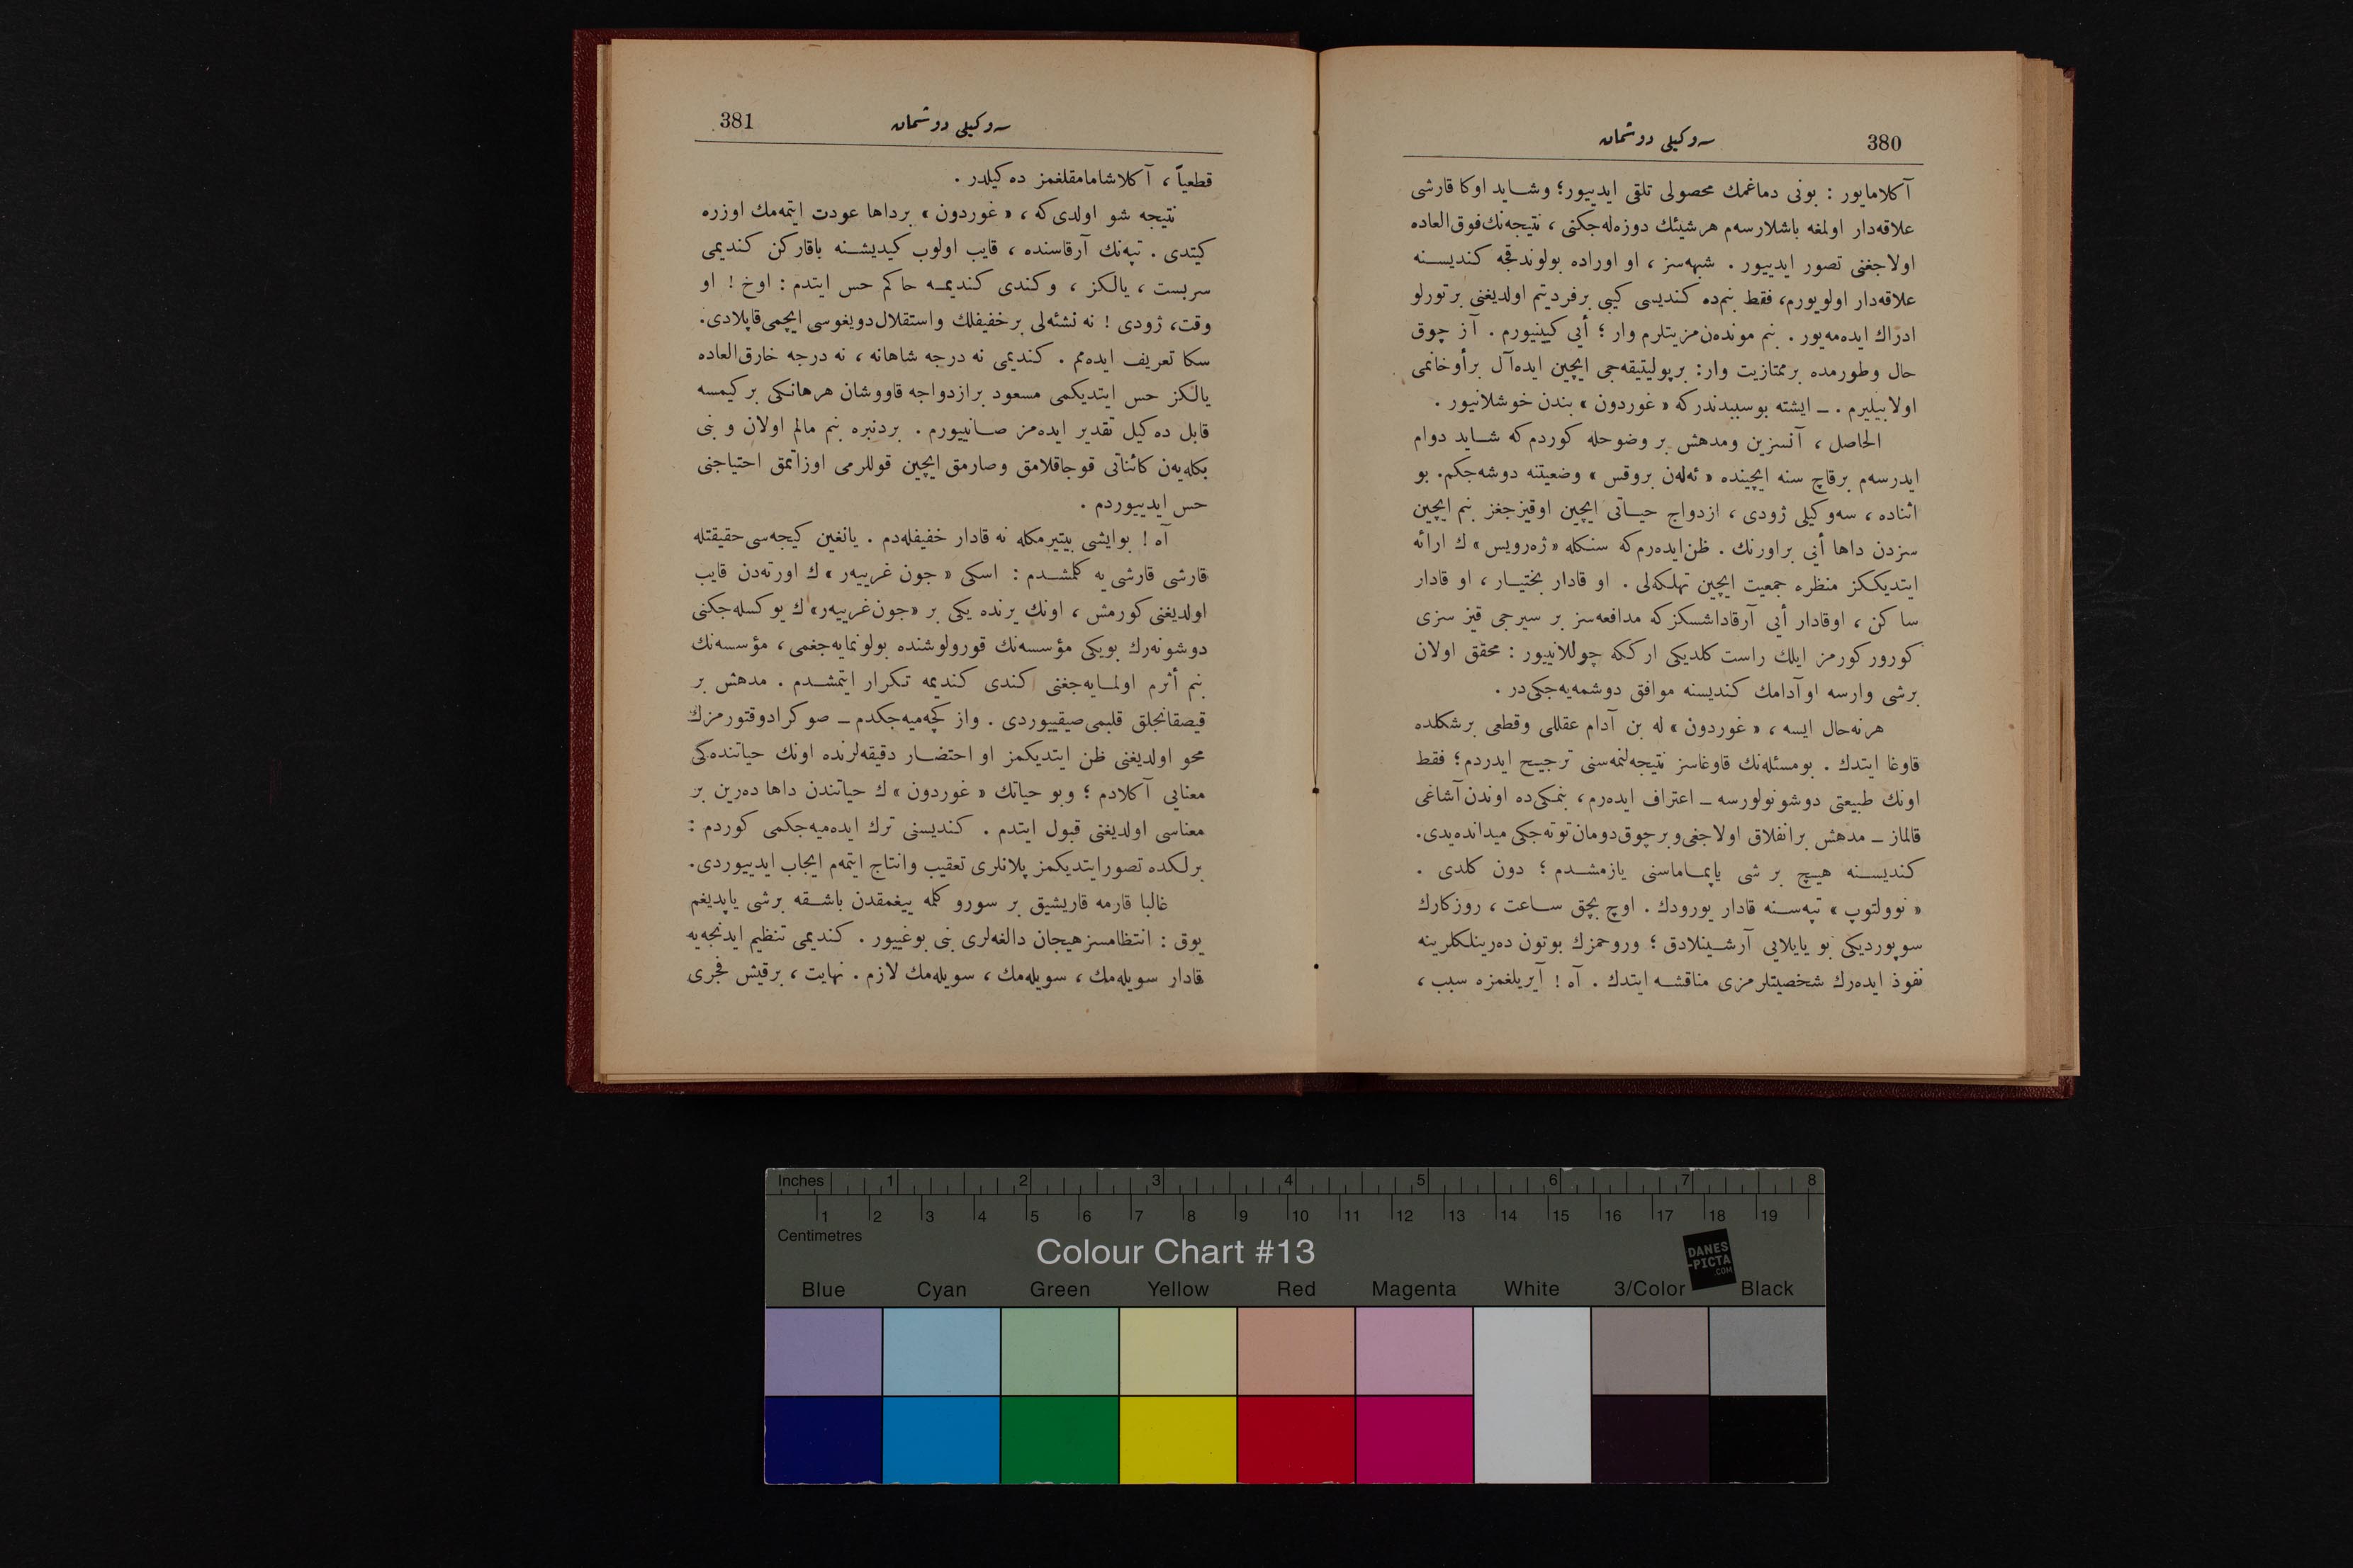 380
سه‌وكیلی دوشمان
آكلامایور : بونی دماغمك محصولی تلقی ایدییور؛ وشاید اوكا قارشی
علاقه‌دار اولمغه باشلارسه‌م هرشیئك دوزه‌له‌جكنی ، نتیجه‌نك فوق‌العاده
اولاجغنی تصور ایدییور . شبهه‌سز ، او اوراده بولوندقجه كندیسنه
علاقه‌دار اولویورم، فقط بنم‌ده كندیسی كیبی برفردیتم اولدیغنی برتورلو
ادراك ایده‌مه‌یور . بنم موندەن‌مزیتلرم وار ؛ أیی كیینیورم . آز چوق
حال وطورمده برممتازیت وار: برپولیتیقه‌جی ایچین ایده‌آل برأوخانمی
اولابیلیرم . ـ ایشته بوسببدندركه « غوردون » بندن خوشلانیور .
الحاصل ، آنسزین ومدهش بر وضوحله كوردم‌كه شاید دوام
ایدرسه‌م برقاچ سنه ایچینده « ئه‌له‌ن بروقس » وضعیتنه دوشه‌جكم. بو
اثناده ، سه‌وكیلی ژودی ، ازدواج حیاتی ایچین اوقیزجغز بنم ایچین
سزدن داها أنی براورنك . ظن‌ایده‌رم‌كه سنكله « ژه‌رویس » ك ارائه
ایتدیككز منظره جمعیت ایچین تهلكه‌لی . او قادار بختیار ، او قادار
ساكن ، اوقادار أیی آرقاداشسكزكه مدافعه‌سز بر سیرجی قیز سزی
كورور كورمز ایلك راست كلدیكی ارككه چوللانییور : محقق اولان
برشی وارسه اوآدامك كندیسنه موافق دوشمه‌یه‌جكی‌در .
هرنه‌حال ایسه ، « غوردون » له بن آدام عقللی وقطعی برشكلده
قاوغا ایتدك . بومسئله‌نك قاوغاسز نتیجه‌لنمه‌سنی ترجیح ایدردم؛ فقط
اونك طبیعتی دوشونولورسه ـ اعتراف ایده‌رم، بنمكی‌ده اوندن آشاغی
قالماز ـ مدهش برانفلاق اولاجغی‌وبرچوق‌دومان‌توته‌جكی میدانده‌یدی.
كندیسنه هیچ بر شی یاپماماسنی یازمشدم ؛ دون كلدی .
« نوولتوپ » تپه‌سنه قادار یورودك . اوچ بچق ساعت ، روزكارك
سوپوردیكی بو یایلایی آرشینلادق ؛ وروحمزك بوتون ده‌رینلكلرینه
نفوذ ایده‌رك شخصیتلرمزی مناقشه ایتدك . آه ! آیریلغمزه سبب ،
381
سه‌وكیلی دوشمان
قطعیاً ، آكلاشامامقلغمز ده‌كیلدر .
نتیجه شو اولدی‌كه ، « غوردون » برداها عودت ایتمه‌مك اوزره
كیتدی . تپه‌نك آرقاسنده ، قایب اولوب كیدیشنه باقاركن كندیمی
سربست ، یالكز ، وكندی كندیمه حاكم حس ایتدم : اوخ ! او
وقت، ژودی ! نه نشئه‌لی برخفیفلك واستقلال‌دویغوسی ایچمی‌قاپلادی.
سكا تعریف ایده‌مم . كندیمی نه درجه شاهانه ، نه درجه خارق‌العاده
یالكز حس ایتدیكمی مسعود برازدواجه قاووشان هرهانكی بر كیمسه
قابل ده‌كیل تقدیر ایده‌مز صانییورم . بردنبره بنم مالم اولان و بنی
بكله‌یه‌ن كائناتی قوجاقلامق وصارمق ایچین قوللرمی اوزاتمق احتیاجنی
حس ایدییوردم .
آه ! بوایشی بیتیرمكله نه قادار خفیفله‌دم . یانغین كیجه‌سی حقیقتله
قارشی قارشی‌یه كلمشدم : اسكی « جون غرییه‌ر » ك اورته‌دن قایب
اولدیغنی كورمش ، اونك یرنده یكی بر «جون‌غرییه‌ر» ك یوكسله‌جكنی
دوشونه‌رك بویكی مؤسسه‌نك قورولوشنده بولونمایه‌جغمی ، مؤسسه‌نك
بنم أثرم اولمایه‌جغنی كندی كندیمه تكرار ایتمشدم . مدهش بر
قیصقانجلق قلبمی‌صیقییوردی . واز كچه‌میه‌جكدم ـ صوكرا دوقتورمزك
محو اولدیغنی ظن ایتدیكمز او احتضار دقیقه‌لرنده اونك حیاتنده‌كی
معنایی آكلادم ؛ وبو حیاتك « غوردون » ك حیاتندن داها ده‌رین بر
معناسی اولدیغنی قبول ایتدم . كندیسنی ترك ایده‌میه‌جكمی كوردم :
برلكده تصورایتدیكمز پلانلری تعقیب وانتاج ایتمه‌م ایجاب ایدییوردی.
غالبا قارمه قاریشیق بر سورو كلمه ییغمقدن باشقه برشی یاپدیغم
یوق : انتظامسز هیجان دالغه‌لری بنی بوغییور . كندیمی تنظیم ایدنجه‌یه
قادار سویله‌مك ، سویله‌مك ، سویله‌مك لازم . نهایت ، برقیش فجری
Inches 1 2 3 4 5 6 7 8
1 2 3 4 5 6 7 8 9 10 11 12 13 14 15 16 17 18 19
Centimetres
Colour Chart #13
DANES
-PICTA
.COM
Blue Cyan Green Yellow Red Magenta White 3/Color Black